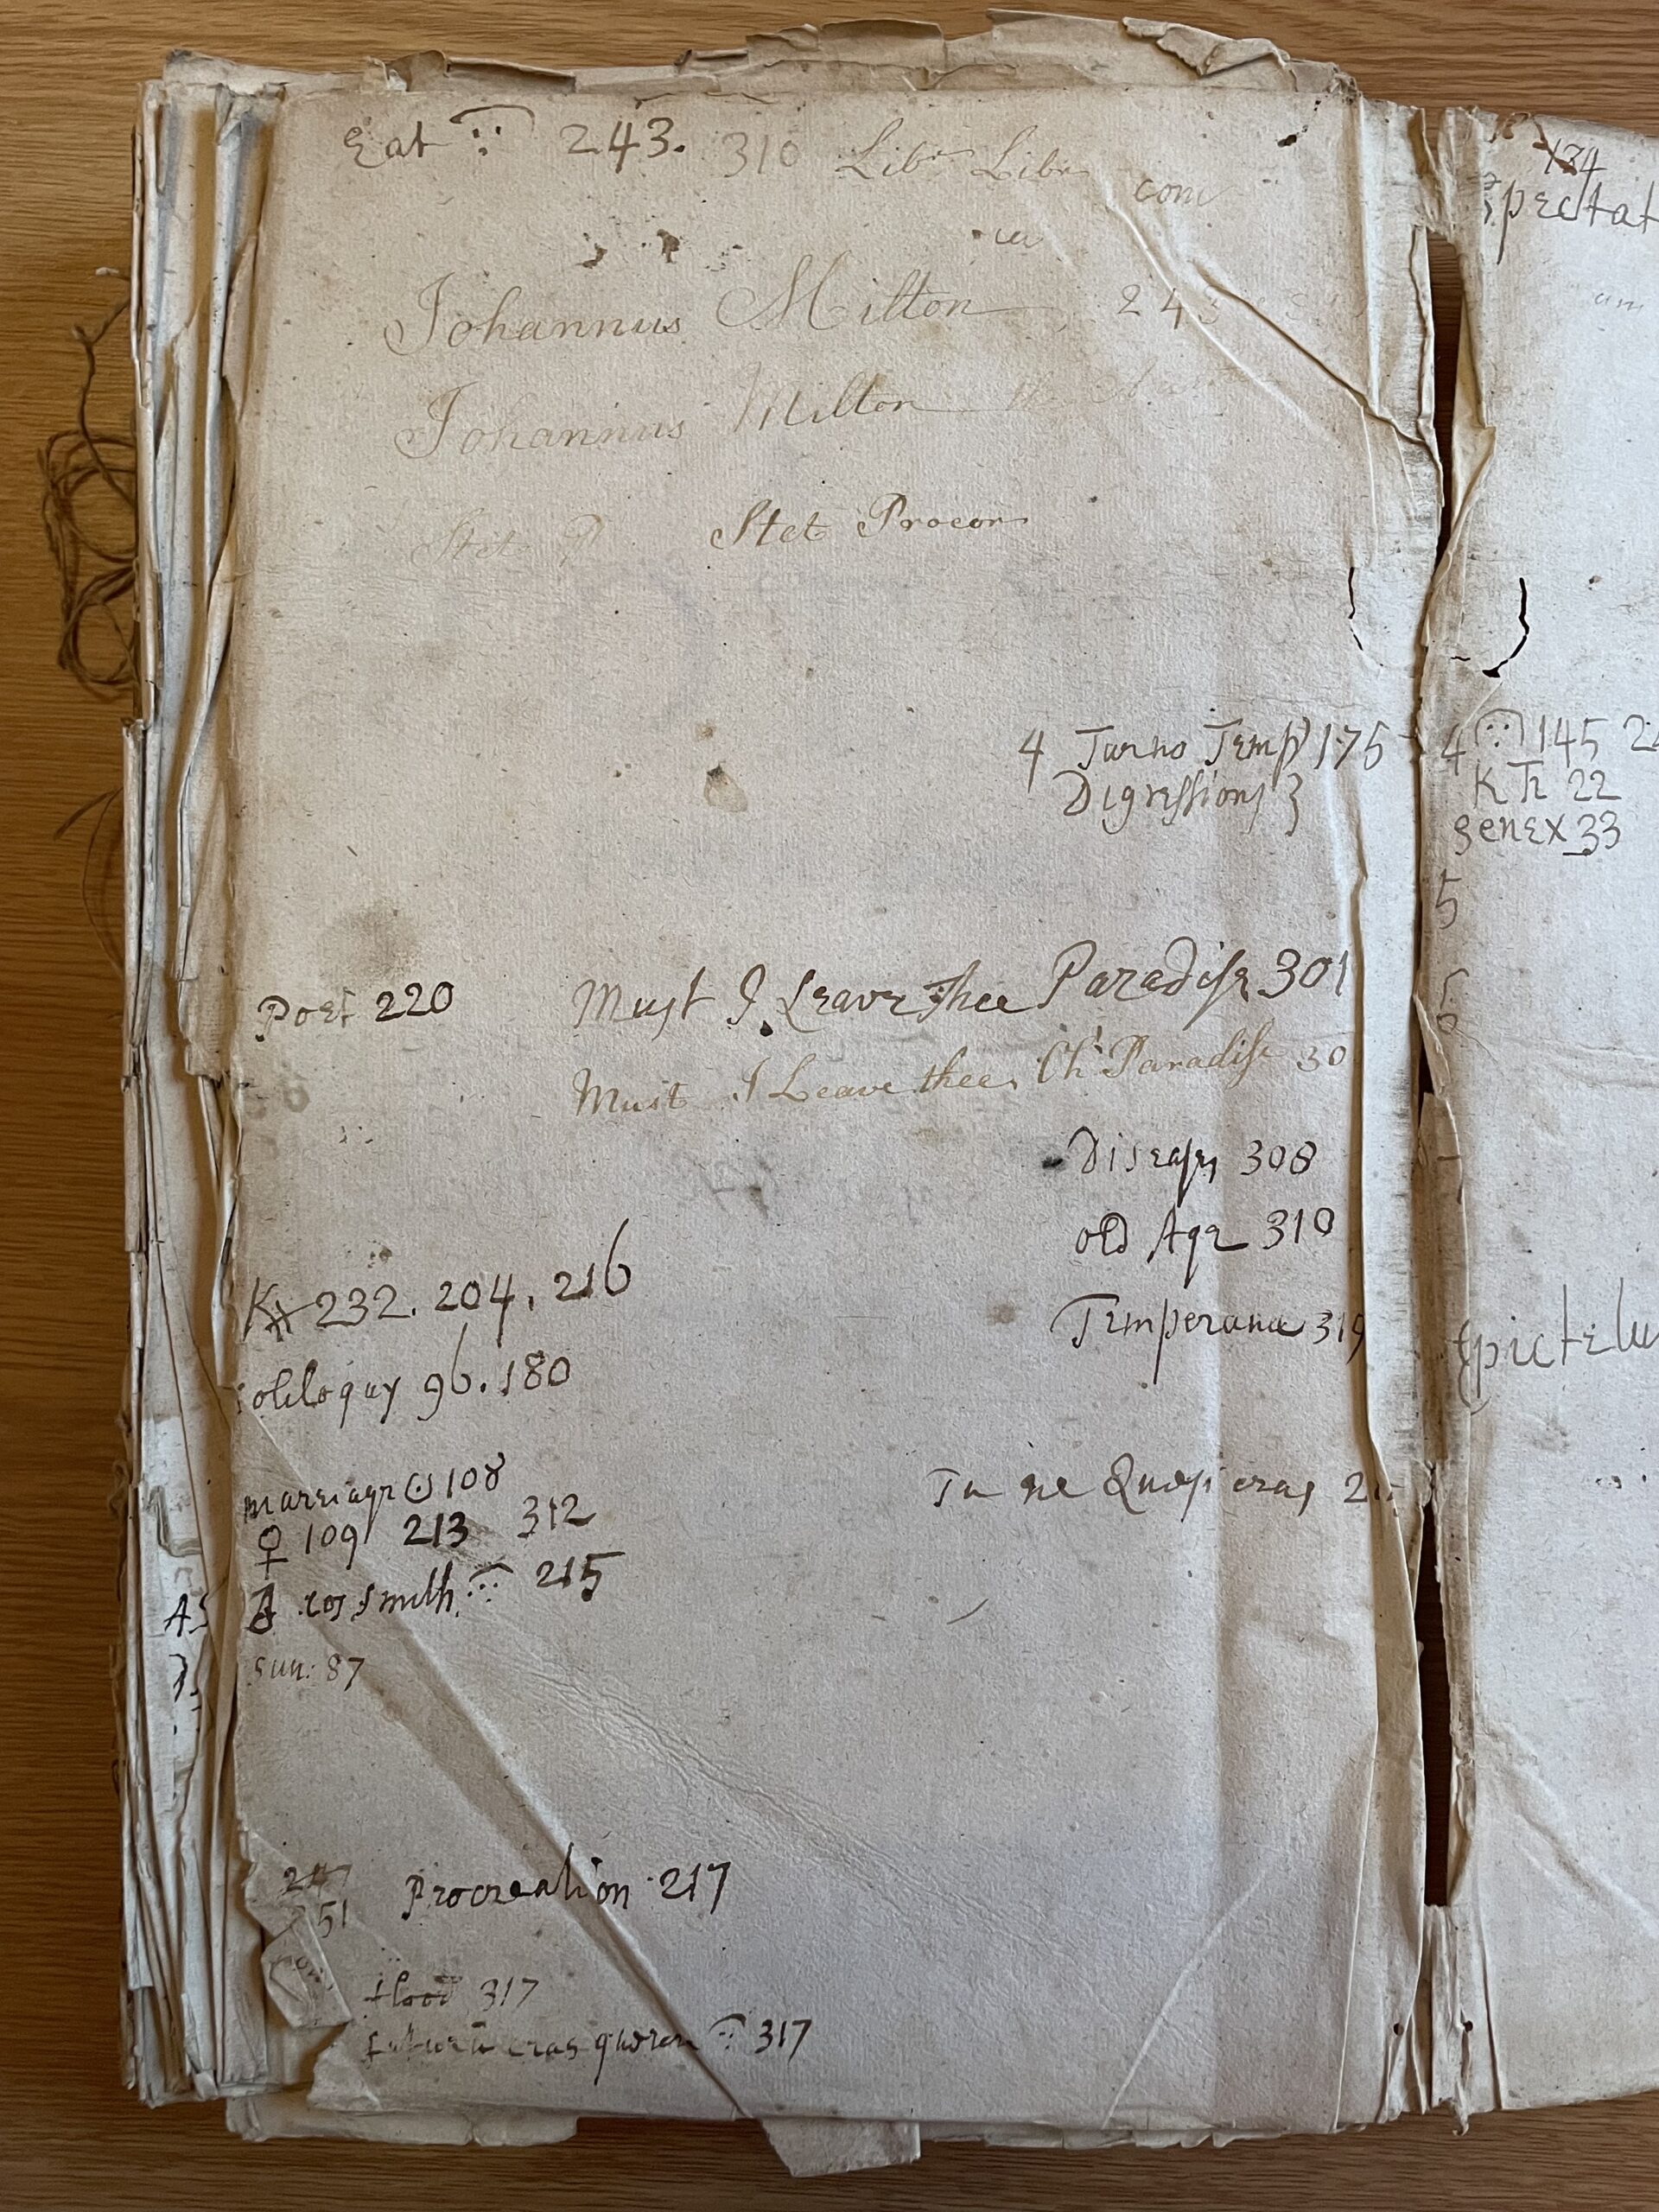 Eat 243. 310 Libr Libr
com
Johannus Milton 243
Johannus Milton
Stet P Stet Procor
4 Turno Temp 175
Digressions 3
Poet 220 Must I Leave Thee Paradise 301
Must I Leave thee, Ch Paradise 30
Diseases 308
old Age 310
K 232. 204. 216
Temperance 319
oliloquy 96. 180
marriage 108
♀ 109 213 312
smith 215
Tu ne Quesi eras 2
sun: 87
51 Procreation 217
flood 317
futura cras 317
134
Spectat
4 145 2
K 22
Senex 33
5
6
Epictetu